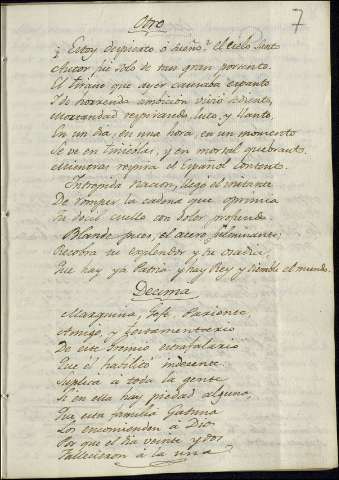 7
Otro
¿ Estoy despierto ó sueño? El cielo santo
Autor fué solo de tan gran portento.
El tirano que ayer causaba espanto
Y de horrenda ambicion vivió sediento,
Mortandad respirando, luto, y llanto,
En un dia, en una hora, en un momento
Se ve en tinieblas, y en mortal quebranto
Mientras respira el Español contento.
Intrepida Nacion, llegó el instante
De romper la cadena que oprimia
Tu docil cuello con dolor profundo.
Blande pues, el acero fulminante;
Recobra tu explendor y tu
Que hay ya Patria y hay Rey y tiemble el mundo.
Decima
Marquina, Jofe, Pariente,
Amigo, y testamentario
De este Gremio estrafalario
Que él habilitó indecente
Suplica a toda la gente
Si en ella hay piedad alguna,
Que esta familia Gatuna
Los encomienden á Dios
Por que el dia veinte y dos
Fallecieron á la una